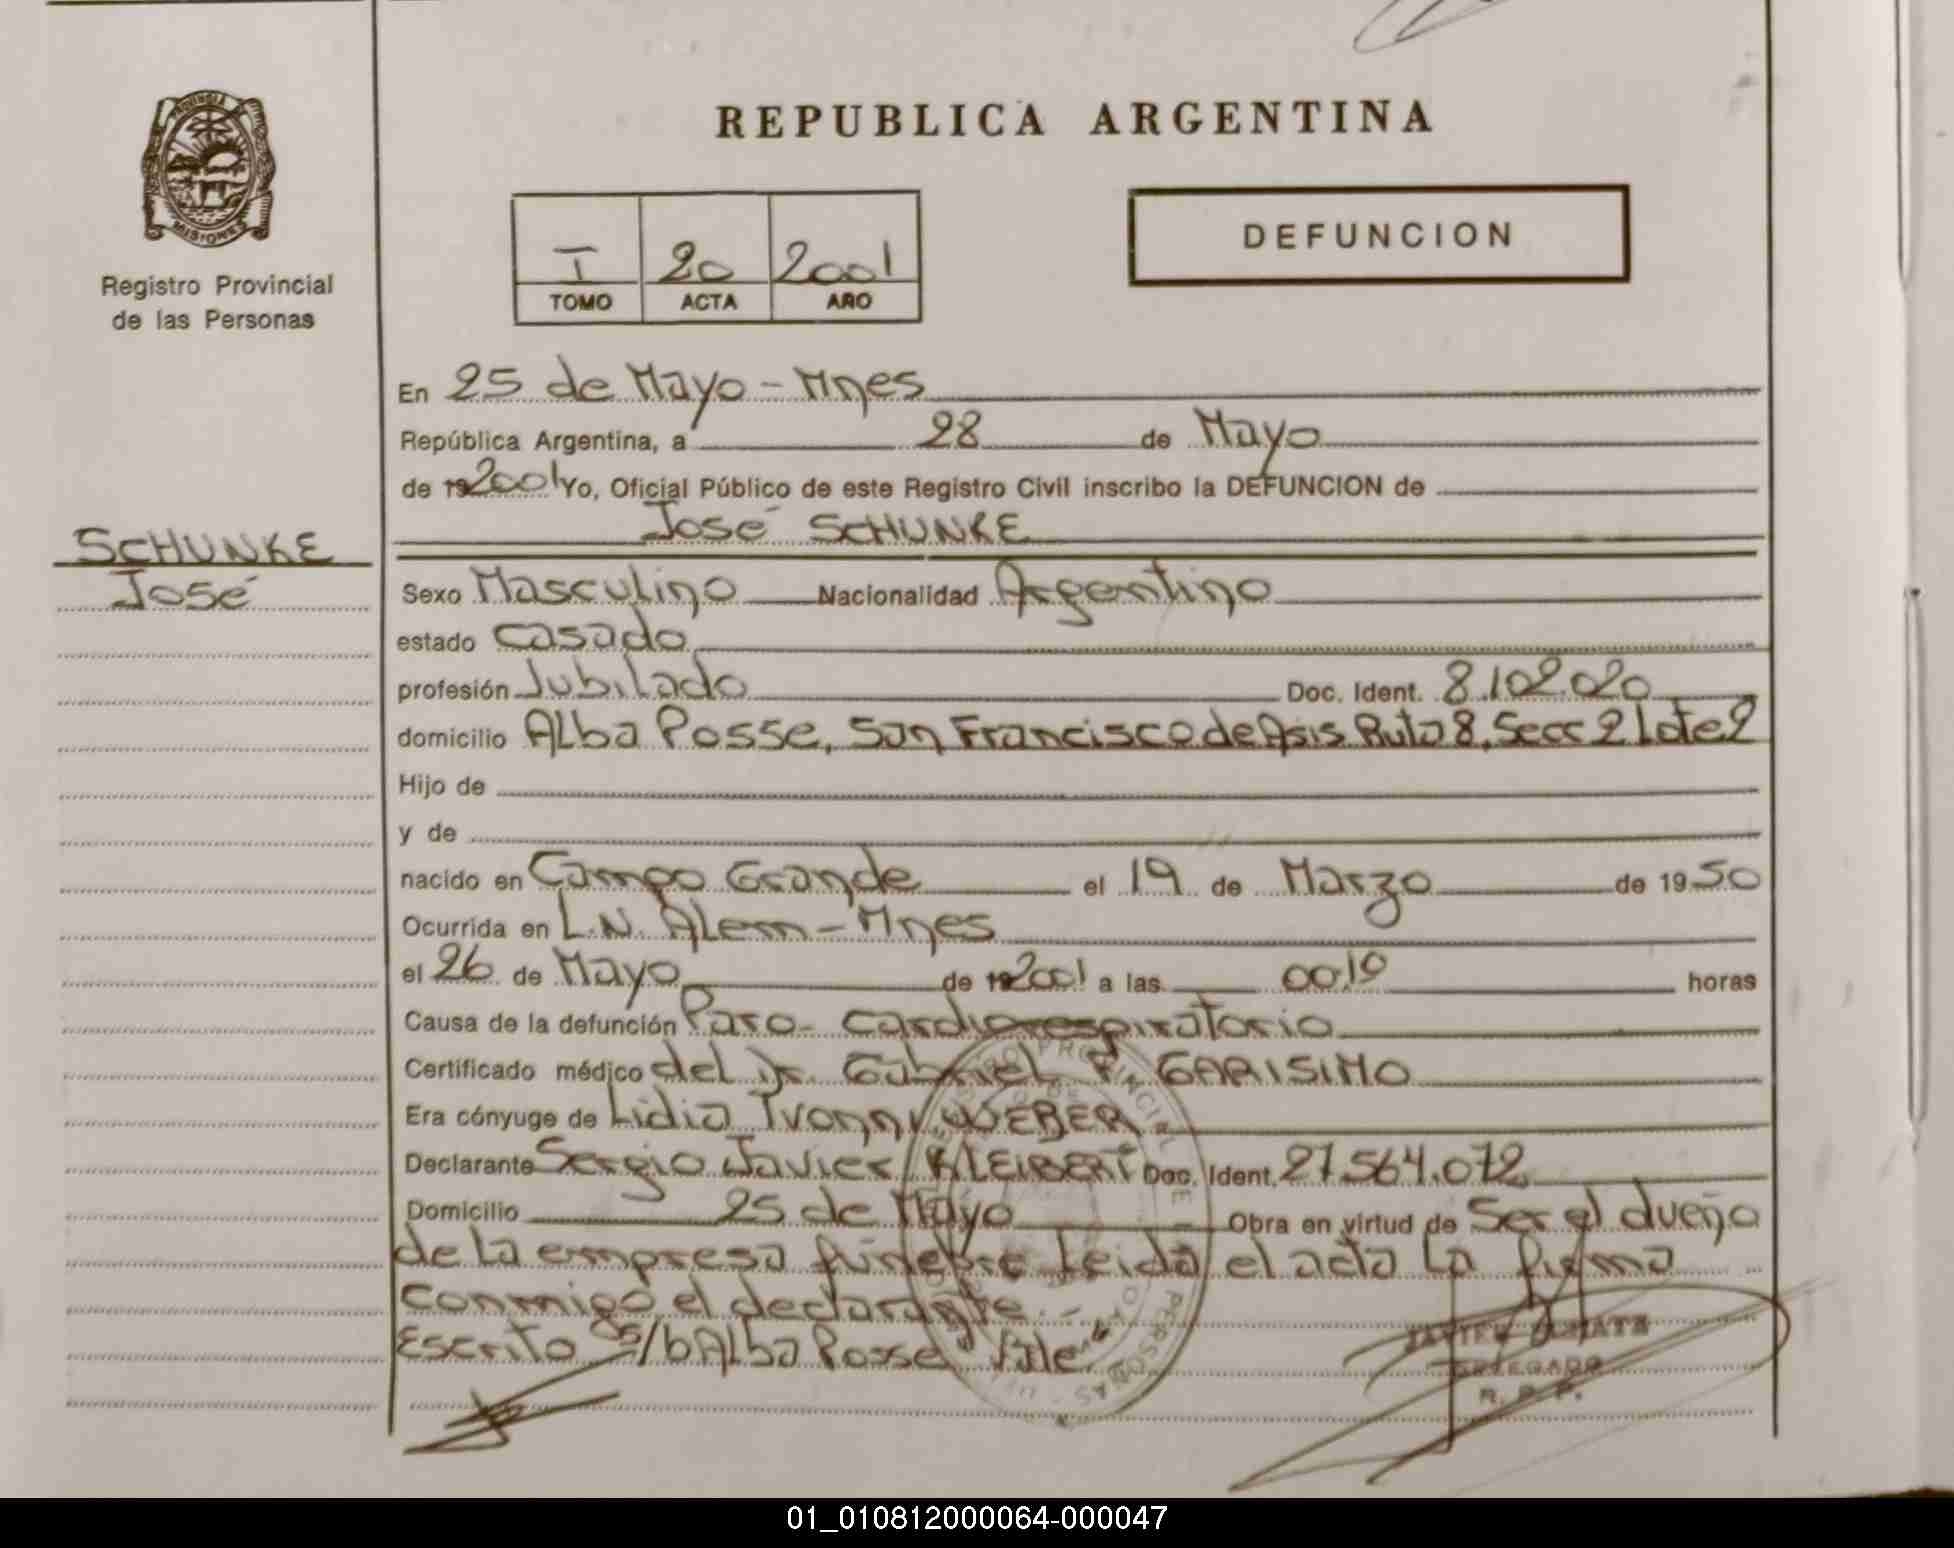 PROVINCIA DE
MISIONES
Registro Provincial
de las Personas
SCHUNKE
José
REPUBLICA ARGENTINA
I 20 2001
TOMO ACTA AÑO
DEFUNCION
En 25 de Mayo - Mnes
República Argentina, a 28 de Mayo
de 192001 Yo, Oficial Público de este Registro Civil inscribo la DEFUNCION de
José SCHUNKE
Sexo Masculino Nacionalidad Argentino
estado casado
profesión Jubilado Doc. Ident. 8.102.020
domicilio Alba Posse, San Francisco de Asis Ruta 8, Secc 2 Lote 2
Hijo de
y de
nacido en Campo Grande el 19 de Marzo de 1950
Ocurrida en L.N. Alem - Mnes
el 26 de Mayo de 192001 a las 00.10 horas
Causa de la defunción Paro - cardiorespiratorio
Certificado médico del Dr. Gabriel F. GARISIMO
Era cónyuge de Lidia Ivonni WEBER
Declarante Sergio Javier KLEIBERT Doc. Ident. 27.564.072
Domicilio 25 de Mayo Obra en virtud de Ser el dueño
de la empresa fúnebre Leida el acta la firma
conmigo el declarante.-
Escrito s/b Alba Posse "Vale"
JAVIER
DELEGADO
R. P. P.
01_010812000064-000047